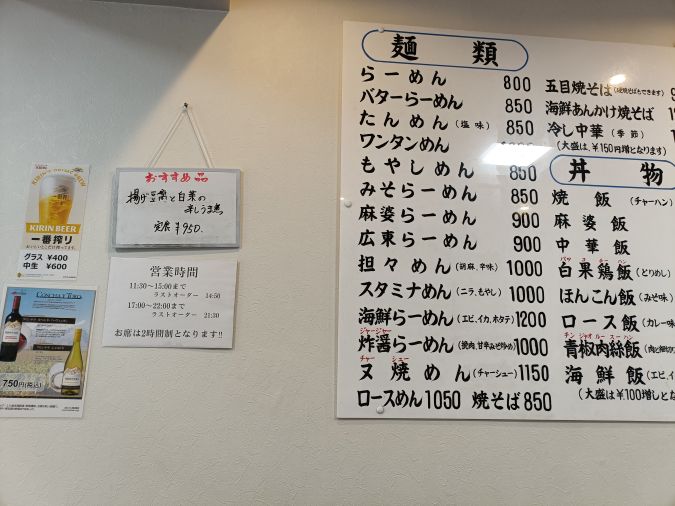 KIRIN BEER
一番搾り
グラス ¥400
中生 ¥600
CONCHA Y TORO
750円(税込)
おすすめ品
揚げ豆腐と白菜の
定食 ¥950.
営業時間
11:30～15:00まで
ラストオーダー 14:50
17:00～22:00まで
ラストオーダー 21:30
お席は2時間制となります!!
麺類
らーめん 800
バターらーめん 850
たんめん(塩味) 850
ワンタンめん
もやしめん 850
みそらーめん 850
麻婆らーめん 900
広東らーめん 900
担々めん(胡麻、辛味) 1000
スタミナめん(ニラ、もやし) 1000
海鮮らーめん(エビ、イカ、ホタテ) 1200
ジャージャー
炸醤らーめん(挽肉、甘辛みそ炒め) 1000
チャー シュー
叉焼めん(チャーシュー) 1150
ロースめん 1050 焼そば 850
五目焼そば
海鮮あんかけ焼そば
冷し中華(季節)
(大盛は、¥150円増となります)
丼物
焼飯(チャーハン)
麻婆飯
中華飯
白果鶏飯(とりめし)
ほんこん飯(みそ味)
ロース飯(カレー味
チンジャオルースーハン
青椒肉絲飯
海鮮飯(エビ、イ
(大盛は¥100増しとな